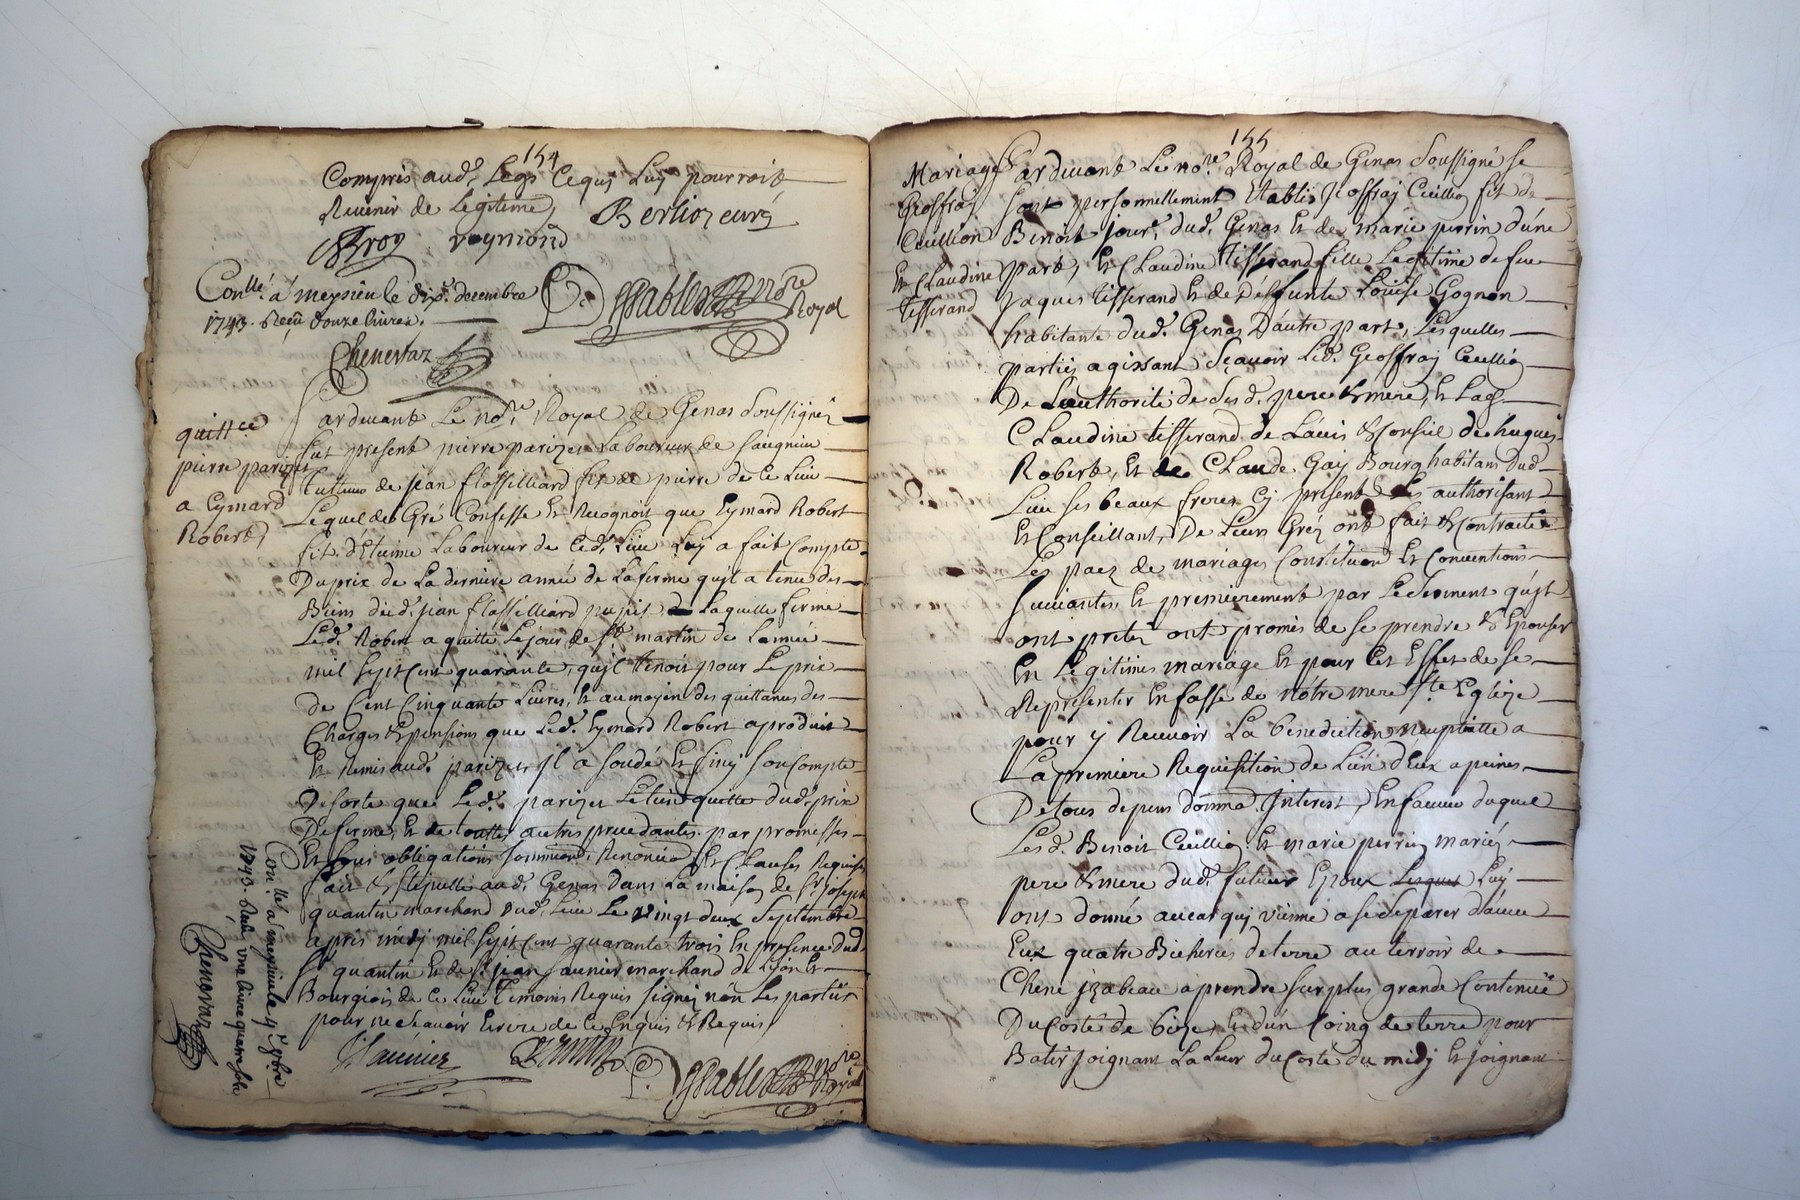 154
Compris aud. Legs Cequi Luy pourroit
Revenir de Legitime, Berlioz curé
Broy reymond
Con.llé a meysieu le dix.e decembre
1743. Reçu douze livres.
P.e Sables no.re Royal
Chenevaz
quitt.ce
pierre parizet
a Eymard
Robert,
Pardevant Le No.re Royal de Genas Soussigné
fut present pierre parizet Laboureur de
tuteur de jean flassilliard fit de pierre de Ce Lieu
Lequel de Gré Confesse Et Recognoit que Eymard Robert
fit d'Etienne Laboureur de Ced. Lieu Luy a fait Compte
Du prix de La derniere année de Laferme qu'jl a tenu des
Biens dud. jean flassilliard pupil, Laquelle ferme
Led. Robert a quitté Le jour de S.t martin de Lannée
mil Sept Cent quarante, qu'jl tenoit pour Le prix
de Cent Cinquante Livres, Et au moyen des quittances des
Charges & pensions que Led. Eymard Robert a produit
Et Remis aud. parizet, jl a Soudé Et finy Son Compte
De sorte que Led. parizet Le tient quitte dud. prix
De ferme, Et de touttes autres precedantes par promesses
Et Sous obligations Renonciaõ Et Clauses Requises
fait & Stipullé aud. Genas Dans La maison de S.r joseph
quantin marchand dud. Lieu Le vingt deux Septembre
apres midy mil Sept Cent quarante trois En presence dud.
S.r quantin Et de S.r jean Saunier marchand de Lyon Et
Bourgeois de Ce Lieu Temoins Requis Signez non Les parties
pour ne Sçavoir Ecrire de Ce Enquis & Requis
Saunier
P. Sables no.re Royal
Con.llé a meysieu le 9.e
1743. Reçu une livre quatre sols
Chenevaz
155
Mariage
Geoffray
Cuillion
Et Claudine
tisserand
Pardevant Le no.re Royal de Genas Soussigné Se
Sont personnellement Etablis Jeoffray Cuillion fit de
Benoit jour.r dud. Genas Et de marie perrin d'une
part, Et Claudine tisserand fille Legitime de feu
Jaques tisserand Et de Deffunte Louise Gognon
habitante dud. Genas D'autre part, Lesquelles
parties agissant Sçavoir Led. Geoffray Cuillion
De Lauthorité de Sesd. pere & mere, Et Lad.
Claudine tisserand de Lavis & Conseil de hugues
Robert, Et de Claude Gay Bourg habitans dud.
Lieu Ses beaux freres Cy present Les authorisant
Et Conseillant, De Leurs Gréz ont fait & Contracté
Les pacz de mariages Constitution Et Conventions
Suivantes, Et premierement par Le Serment qu'jls
ont pretez ont promis de Se prendre & Epouser
En Legitimes mariage Et pour Cet Effet de Se
Representer En fasse de nôtre mere S.te Eglize
pour y Recevoir La benediction neuptialle a
La premiere Requisition de L'un d'Eux a peines
De tous depens domma. Interest, En faveur duquel
Lesd. Benoit Cuillion Et marie perrin mariés
pere & mere dud. futeur Epoux Lesquels Luy
ont donné au cas qu'jl vienne a se Separer d'avec
Eux quatre Bicherées de terre au terroir de
Chene jzabeau a prendre Sur plus grande Contenue
Du Costé de bize, Et d'un Coing de terre pour
Batir joignant La Leur du Costé du midy Et joignant